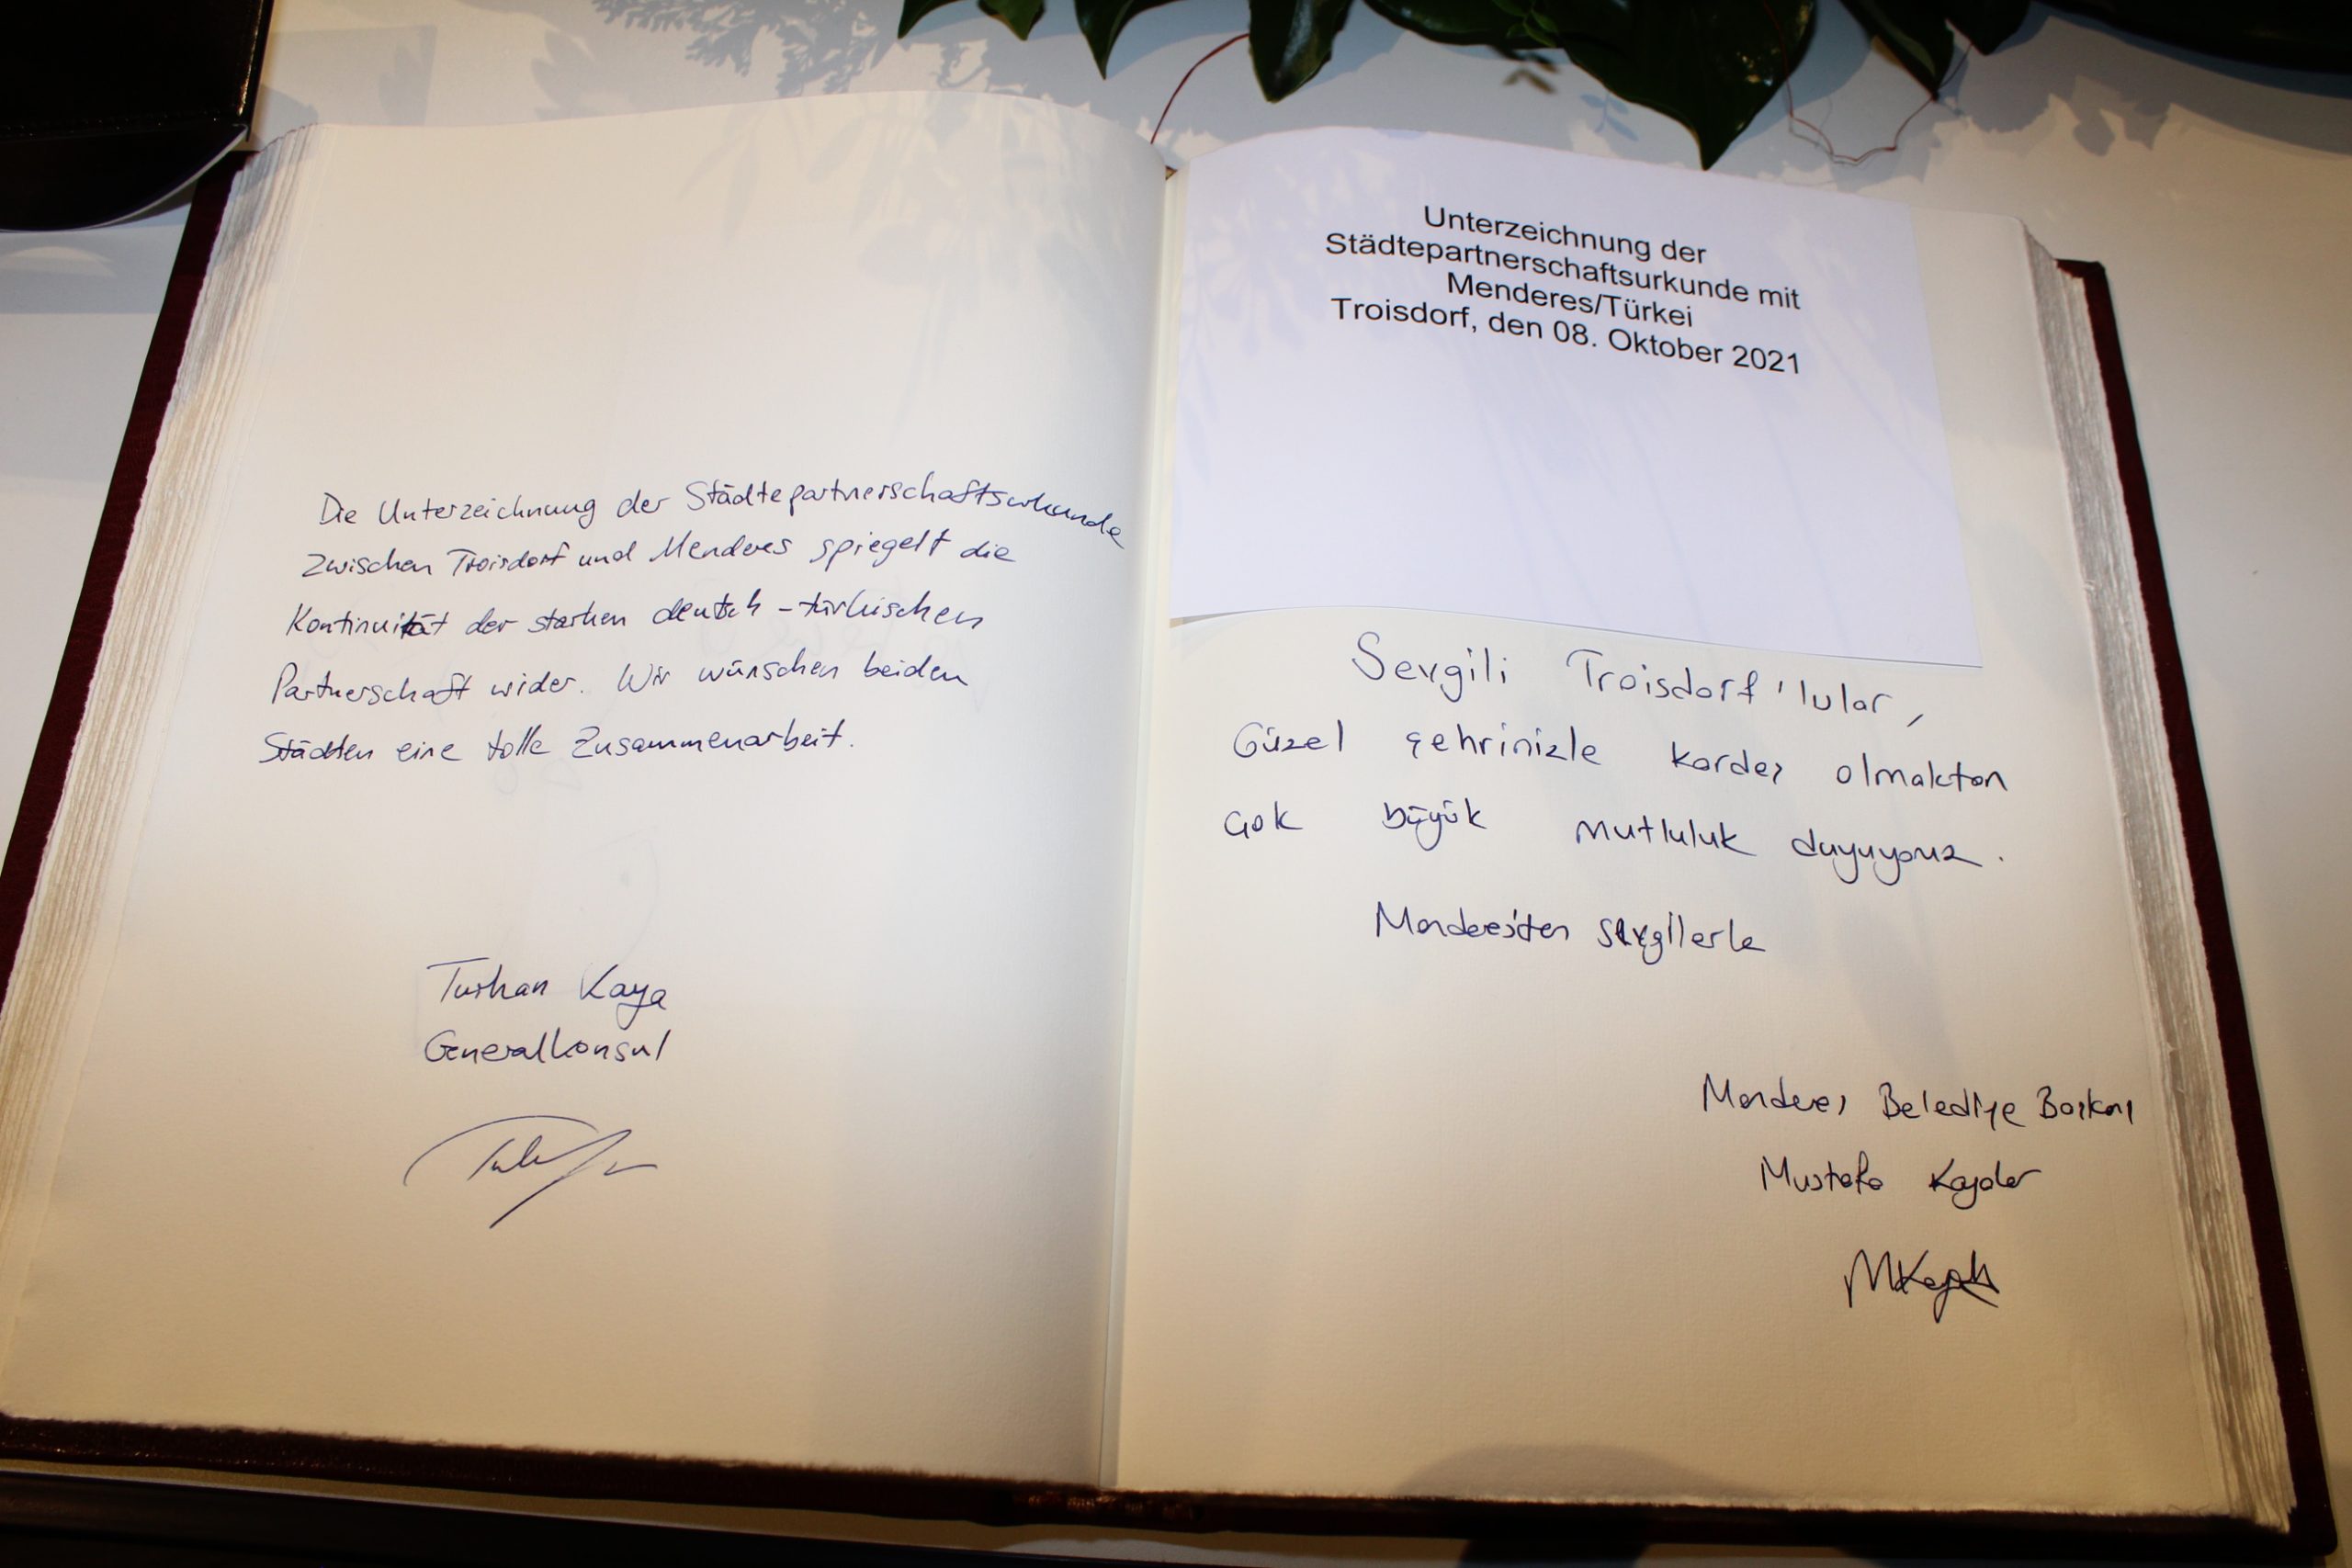 Die Unterzeichnung der Städtepartnerschaftsurkunde
zwischen Troisdorf und Menderes spiegelt die
Kontinuität der starken deutsch-türkischen
Partnerschaft wider. Wir wünschen beiden
Städten eine tolle Zusammenarbeit.
Turhan Kaya
Generalkonsul
Unterzeichnung der
Städtepartnerschaftsurkunde mit
Menderes/Türkei
Troisdorf, den 08. Oktober 2021
Sevgili Troisdorf'lular,
Güzel şehrinizle kardeş olmaktan
çok büyük mutluluk duyuyoruz.
Menderes'ten sevgilerle
Menderes Belediye Başkanı
Mustafa Kayalar